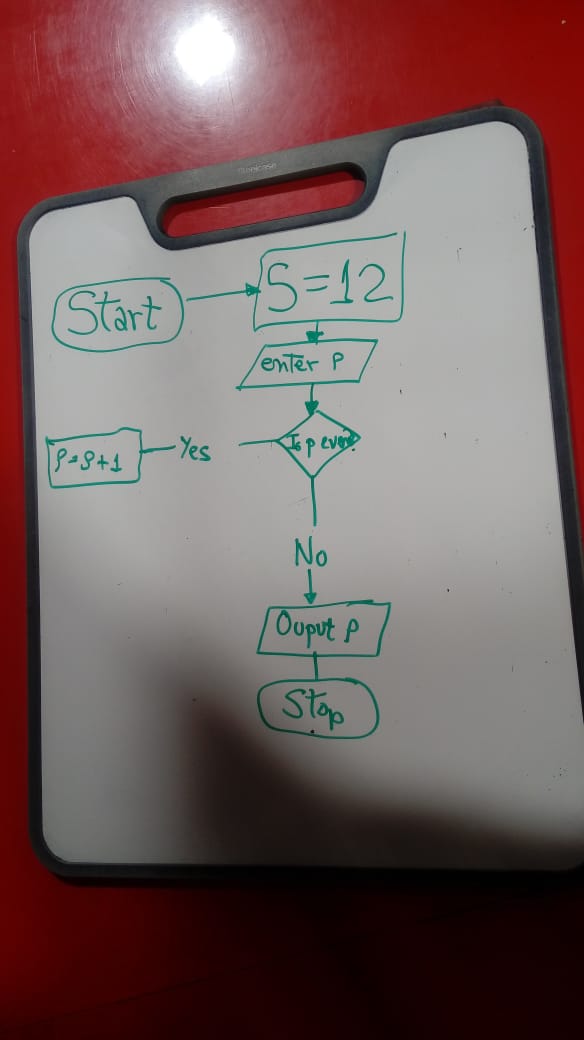 Steelcase
Start
S=12
enter P
Is p even?
Yes
P=S+1
No
Ouput P
Stop